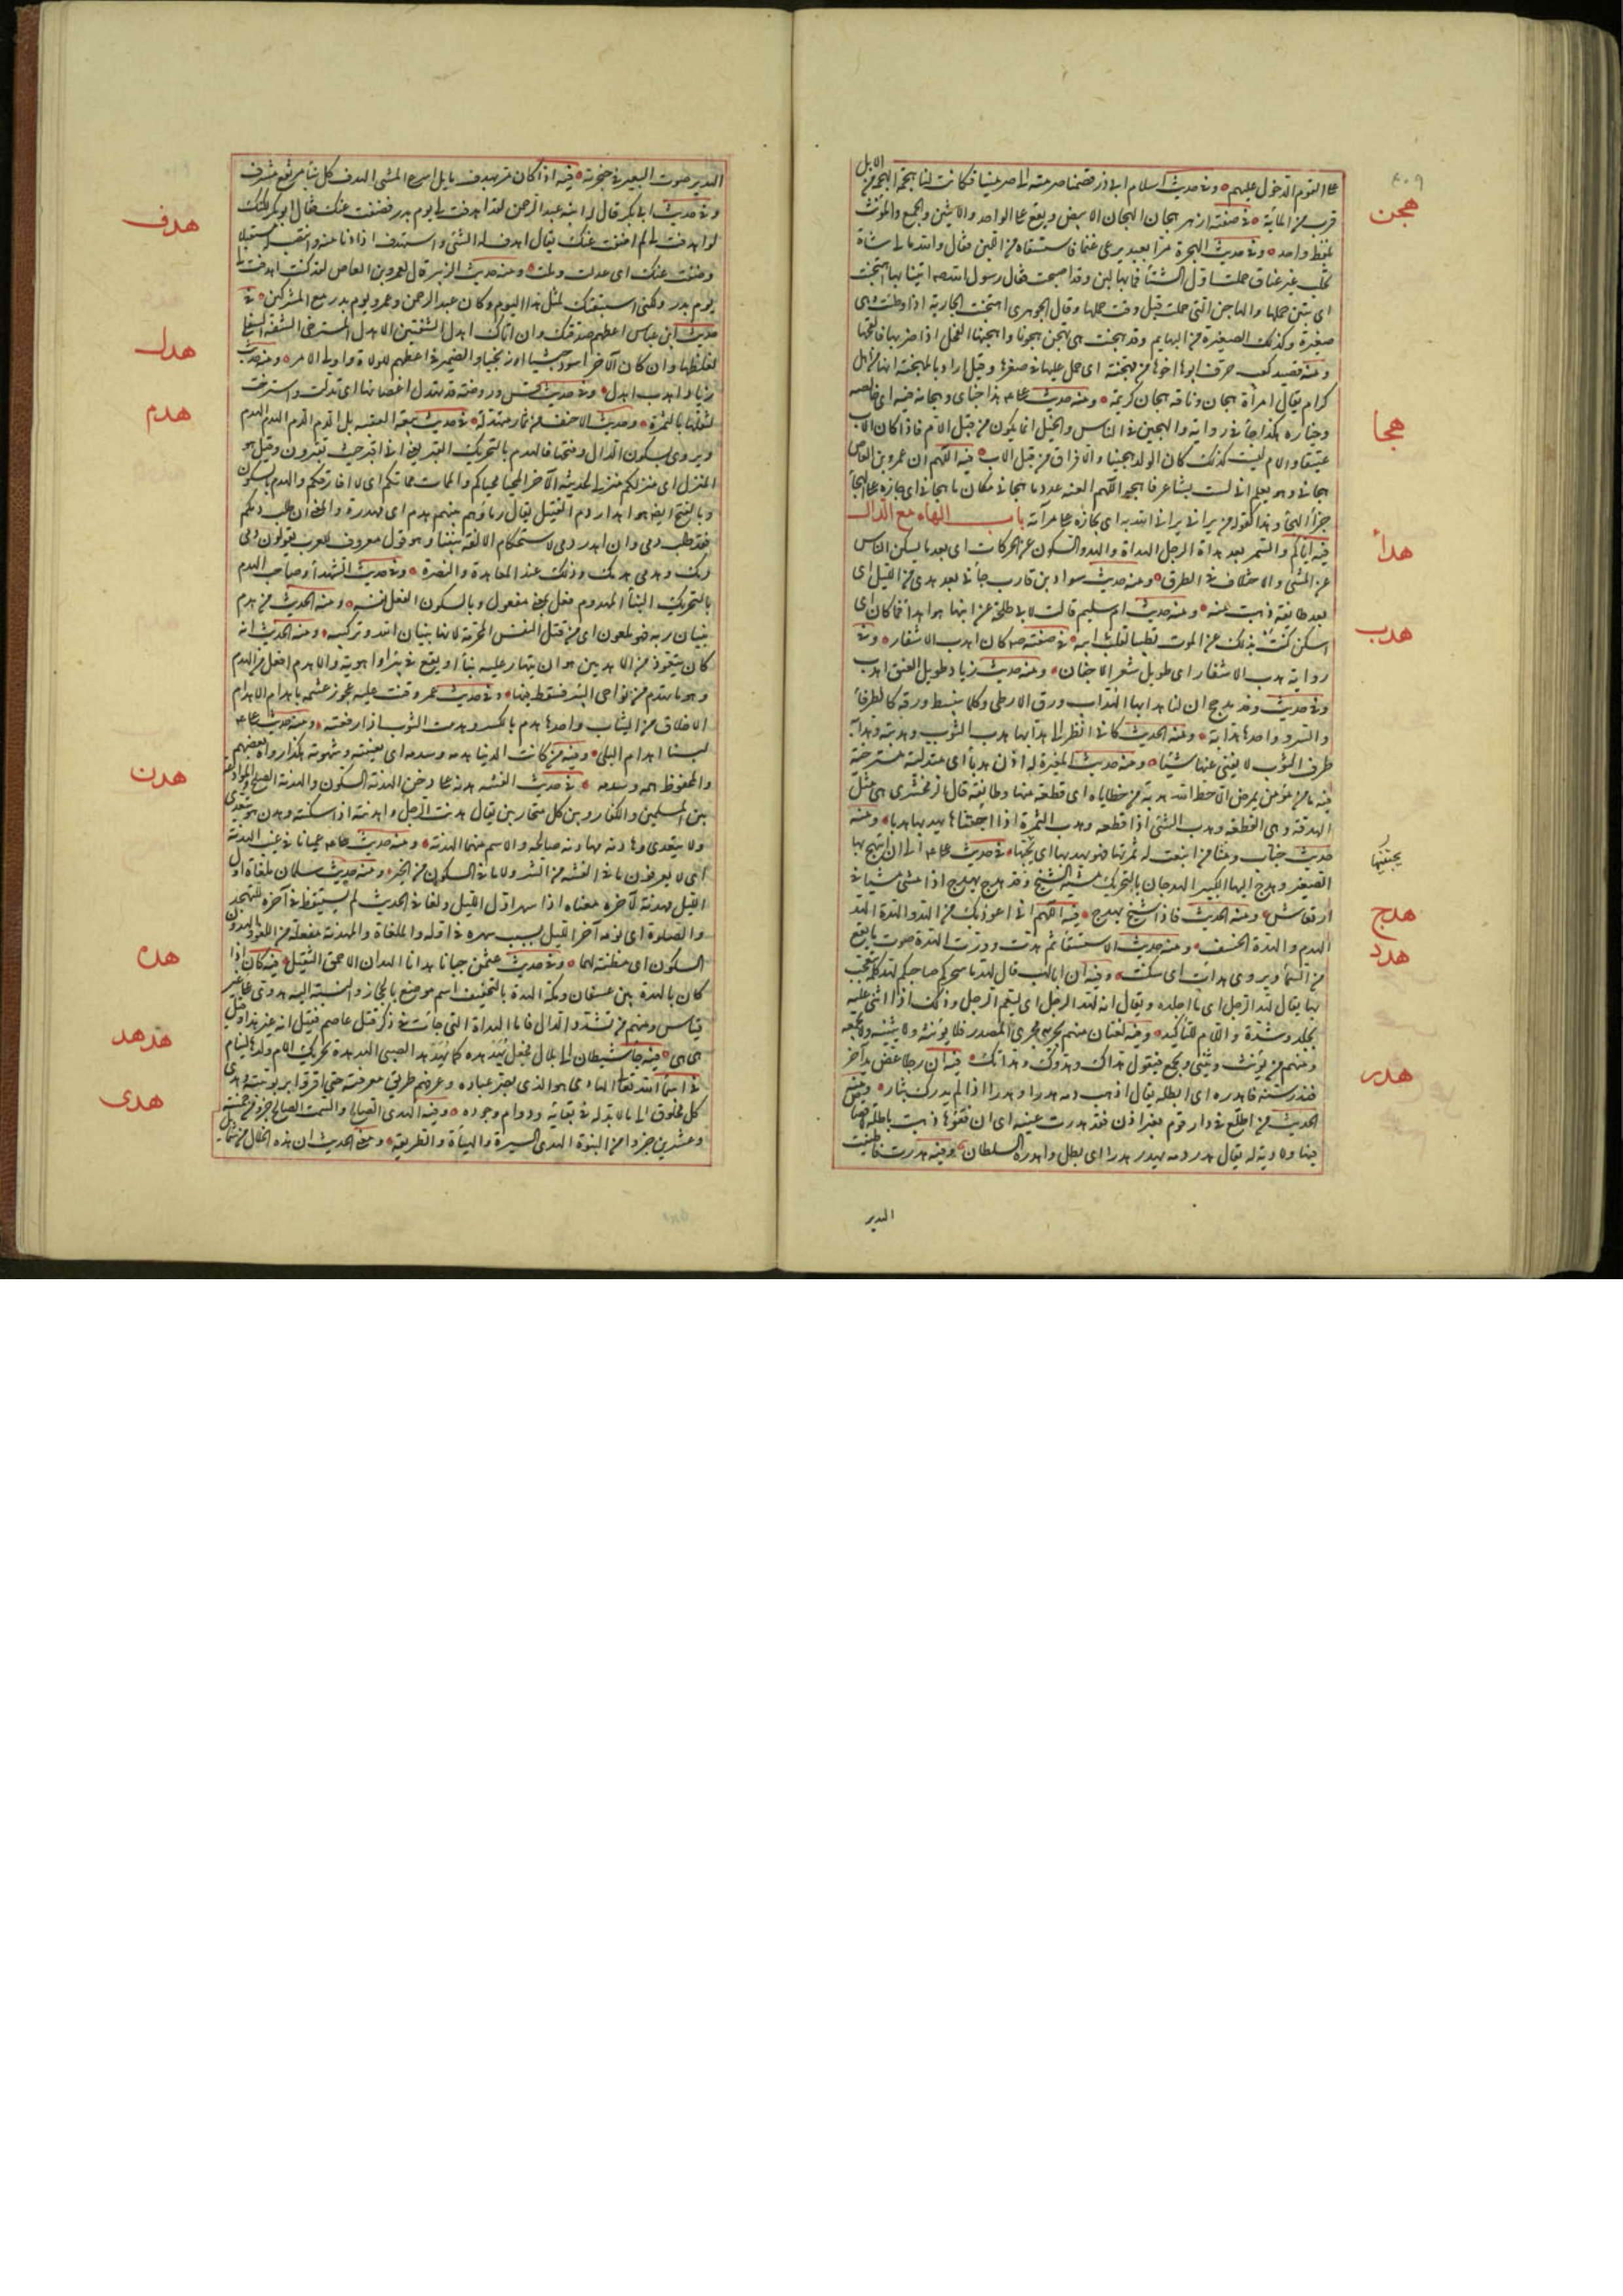 ٤٠٩
على القوم الدخول عليهم وفى حديث اسلام ابى ذر فضممنا صرمته الى صرمتنا فكانت لنا هجمة الهجمة من الابل
هجن
قريب من المائة فى صفته ازهر هجان الهجان الابيض ويقع على الواحد والاثنين والجميع والمؤنث
بلفظ واحد وفى حديث الهجرة مرا بعبد يرعى غنما فاستسقياه من اللبن فقال والله مالى شاة
تحلب غير عناق حملت اول الشتاء فما بها لبن وقد اهتجنت فقال رسول الله ائتنا بها اهتجنت
اى تبين حملها والهاجن التى حملت قبل وقت حملها وقال الجوهرى اهتجنت الجارية اذا وطئت وهى
صغيرة وكذلك الصغيرة من البهايم وقد هجنت هى تهجن هجونا واهجنها الفحل اذا ضربها فالقحها
ومنه قصيد كعب حرف ابوها اخوها من مهجنة اى حمل عليها فى صغرها وقيل اراد بالمهجنة انها من ابل
كرام يقال امرأة هجان وناقة هجان كريمة ومنه حديث على هذا جناى وهجانه فيه اى خالصه
وخياره هكذا جاء فى رواية والهجين فى الناس والخيل انما يكون من قبل الام فاذا كان الاب
هجا
عتيقا والام ليست كذلك كان الولد هجينا والاقراف من قبل الاب فيه اللهم ان عمرو بن العاص
هجانى وهو يعلم انى لست بشاعر فاهجه اللهم العنه عدد ما هجانى مكان ما هجانى اى جازه على الهجاء
جزاء الهجاء وهذا كقوله من يرائى يرائى الله به اى يجازه على مراءاته باب الهاء مع الدال
هدأ
فيه اياكم والسمر بعد هدأة الرجل الهدأة والهدو السكون عن الحركات اى بعد ما يسكن الناس
عن المشى والاختلاف فى الطرق ومنه حديث سواد بن قارب جاءنى بعد هدى من الليل اى
بعد طائفة ذهبت منه ومنه حديث ام سليم قالت لابى طلحة عن ابنها هو اهدأ مما كان اى
هدب
اسكن كنت بذلك عن الموت تطييبا لقلب ابيه فى صفته كان اهدب الاشفار وفى
رواية هدب الاشفار اى طويل شعر الاجفان ومنه حديث زياد طويل العنق اهدب
وفى حديث وفد مذحج ان لنا هدابها الهداب ورق الارطى وكلما ينبسط ورقه كالطرفاء
والسرو واحدها هدابة ومنه الحديث كانى انظر الى هدابها هدب الثوب وهدبته وهدابه
طرف الثوب
فيه ما من مؤمن يمرض الا حط الله هدبة من خطاياه اى قطعة منها وطائفة قال الزمخشرى هى مثل
الهدفة وهى القطعة وهدب الشئ اذا قطعه وهدب الثمرة اذا اجتناها يهدبها هدبا ومنه
يجتنيها
حديث خباب ومنا من اينعت له ثمرتها فهو يهدبها اى يجنيها فى حديث على الى ان ابتهج بها
الصغير وهدج اليها الكبير الهدجان بالتحريك مشية الشيخ وقد هدج يهدج اذا مشى مشيا فى
هدج
ارتعاش ومنه الحديث فاذا شيخ يهدج فيه اللهم انى اعوذ بك من الهد والهدة الهد
هدد
الهدم والهدة الخسف ومنه حديث الاستسقاء ثم هدت ودرت الهدة صوت ما يقع
من السماء ويروى هدأت اى سكنت وفيه ان ابا لهب قال لهد ما سحركم صاحبكم لهد كلمة تعجب
بها يقال لهد الرجل اى ما اجلده ويقال انه لهد الرجل اى لنعم الرجل وذلك اذا اثنى عليه
بجلد وشدة واللام للتأكيد وفيه لغتان منهم من يجريه مجرى المصدر فلا يؤنثه ولا يثنيه ولا يجمعه
ومنهم من يؤنث ويثنى ويجمع فيقول هداك وهدوك وهدتك فيه ان رجلا عض يد آخر
هدر
فندر سنه فاهدره اى ابطله يقال ذهب دمه هدرا وهدرا اذا لم يدرك بثاره ومنه
الحديث من اطلع فى دار قوم بغير اذن فقد هدرت عينه اى ان فقؤها ذهبت باطلة لا قصاص
فيها ولا دية له يقال هدر دمه يهدر هدرا اى بطل واهدره السلطان وفيه هدرت فاطنبت
الهدير
الهدير صوت البعير فى حنجرته فيه اذا كان مر بهدف مايل اسرع المشى الهدف كل بناء مرتفع مشرف
هدف
وفى حديث ابى بكر قال له ابنه عبد الرحمن لقد اهدفت لى يوم بدر فضفت عنك فقال ابو بكر لكنك
لو اهدفت لى لم اضف عنك يقال اهدف له الشئ واستهدف اذا دنا منه وانتصب له مستقبلا
وضفت عنك اى عدلت وملت ومنه حديث الزبير قال لعمرو بن العاص لقد كنت اهدفت لى
يوم بدر ولكنى استبقيتك لمثل هذا اليوم وكان عبد الرحمن وعمرو يوم بدر مع المشركين فى
هدل
حديث ابن عباس اعطهم صدقتك وان اتاك اهدل الشفتين الاهدل المسترخى الشفة السفلى
لغلظها وان كان الآخر اسود حبشيا او زنجيا والضمير فى اعطهم للولاة واولى الامر ومنه حديث
زياد اهدب اهدل وفى حديث قس وروضة قد تهدل اغصانها اى تدلت واسترخت
هدم
لثقلها بالثمرة وحديث الاحنف من ثمار متهدلة فى حديث بيعة العقبة بل الدم الدم الهدم الهدم
ويروى بسكون الدال وفتحها فالهدم بالتحريك القبر يعنى انى اقبر حيث تقبرون وقيل هو
المنزل اى منزلكم منزلى كحديثه الآخر المحيا محياكم والممات مماتكم اى لا افارقكم والهدم بالسكون
وبالفتح ايضا هو اهدار دم القتيل يقال دماؤهم بينهم هدم اى مهدرة والمعنى ان طلب دمكم
فقد طلب دمى وان اهدر دمى لاستحكام الالفة بيننا وهو قول معروف للعرب يقولون دمى
دمك وهدمى هدمك وذلك عند المعاهدة والنصرة وفى حديث الشهداء وصاحب الهدم
بالتحريك البناء المهدوم فعل بمعنى مفعول وبالسكون الفعل نفسه ومنه الحديث من هدم
بنيان ربه فهو ملعون اى من قتل النفس المحرمة لانها بنيان الله وتركيبه ومنه الحديث انه
كان يتعوذ من الاهدمين هو ان ينهار عليه بناء او يقع فى بئر او اهوية والاهدم افعل من الهدم
وهو ما تهدم من نواحى البئر فسقط فيها وفى حديث عمر وقفت عليه عجوز عشمة باهدام الاهدام
الاخلاق من الثياب واحدها هدم بالكسر وهدمت الثوب اذا رقعته ومنه حديث على
لبسنا اهدام البلى وفيه من كانت الدنيا هدمه وسدمه اى بغيته وشهوته هكذا رواه بعضهم
هدن
والمحفوظ همه وسدمه فى حديث الفتنة هدنة على دخن الهدنة السكون والهدنة الصلح والموادعة
بين المسلمين والكفار وبين كل متحاربين يقال هدنت الرجل واهدنته اذا سكنته وهدن هو يتعدى
ولا يتعدى وهادنه مهادنة صالحه والاسم منهما الهدنة ومنه حديث على عميانا فى غيب الهدنة
اى لا يعرفون ما فى الفتنة من الشر ولا ما فى السكون من الخير ومنه حديث سلمان ملغاة اول
الليل مهدنة لآخره معناه اذا سهر اول الليل ولغا فى الحديث لم يستيقظ فى آخره للتهجد
والصلوة اى نومه آخر الليل بسبب سهره فى اوله والملغاة والمهدنة مفعلة من اللغو والهدون
السكون اى مظنة لهما وفى حديث عثمن جبانا هدانا الهدان الاحمق الثقيل فيه كان اذا
هده
كان بالهدة بين عسفان ومكة الهدة بالتخفيف اسم موضع بالحجاز والنسبة اليه هدوى على غير
قياس ومنهم من يشدد الدال فاما الهدأة التى جاءت فى ذكر قتل عاصم فقيل انه غير هذا وقيل
هدهد
هى هى فيه جاء شيطان الى بلال فجعل يهدهده كما يهدهد الصبى الهدهدة تحريك الام ولدها لينام
فى اسماء الله تعالى الهادى هو الذى بصر عباده وعرفهم طريق معرفته حتى اقروا بربوبيته وهدى
هدى
كل مخلوق الى ما لا بد له فى بقائه ودوام وجوده وفيه الهدى الصالح والسمت الصالح جزء من خمسة
وعشرين جزءا من النبوة الهدى السيرة والهيأة والطريقة ومعنى الحديث ان هذه الخلال من شمايل